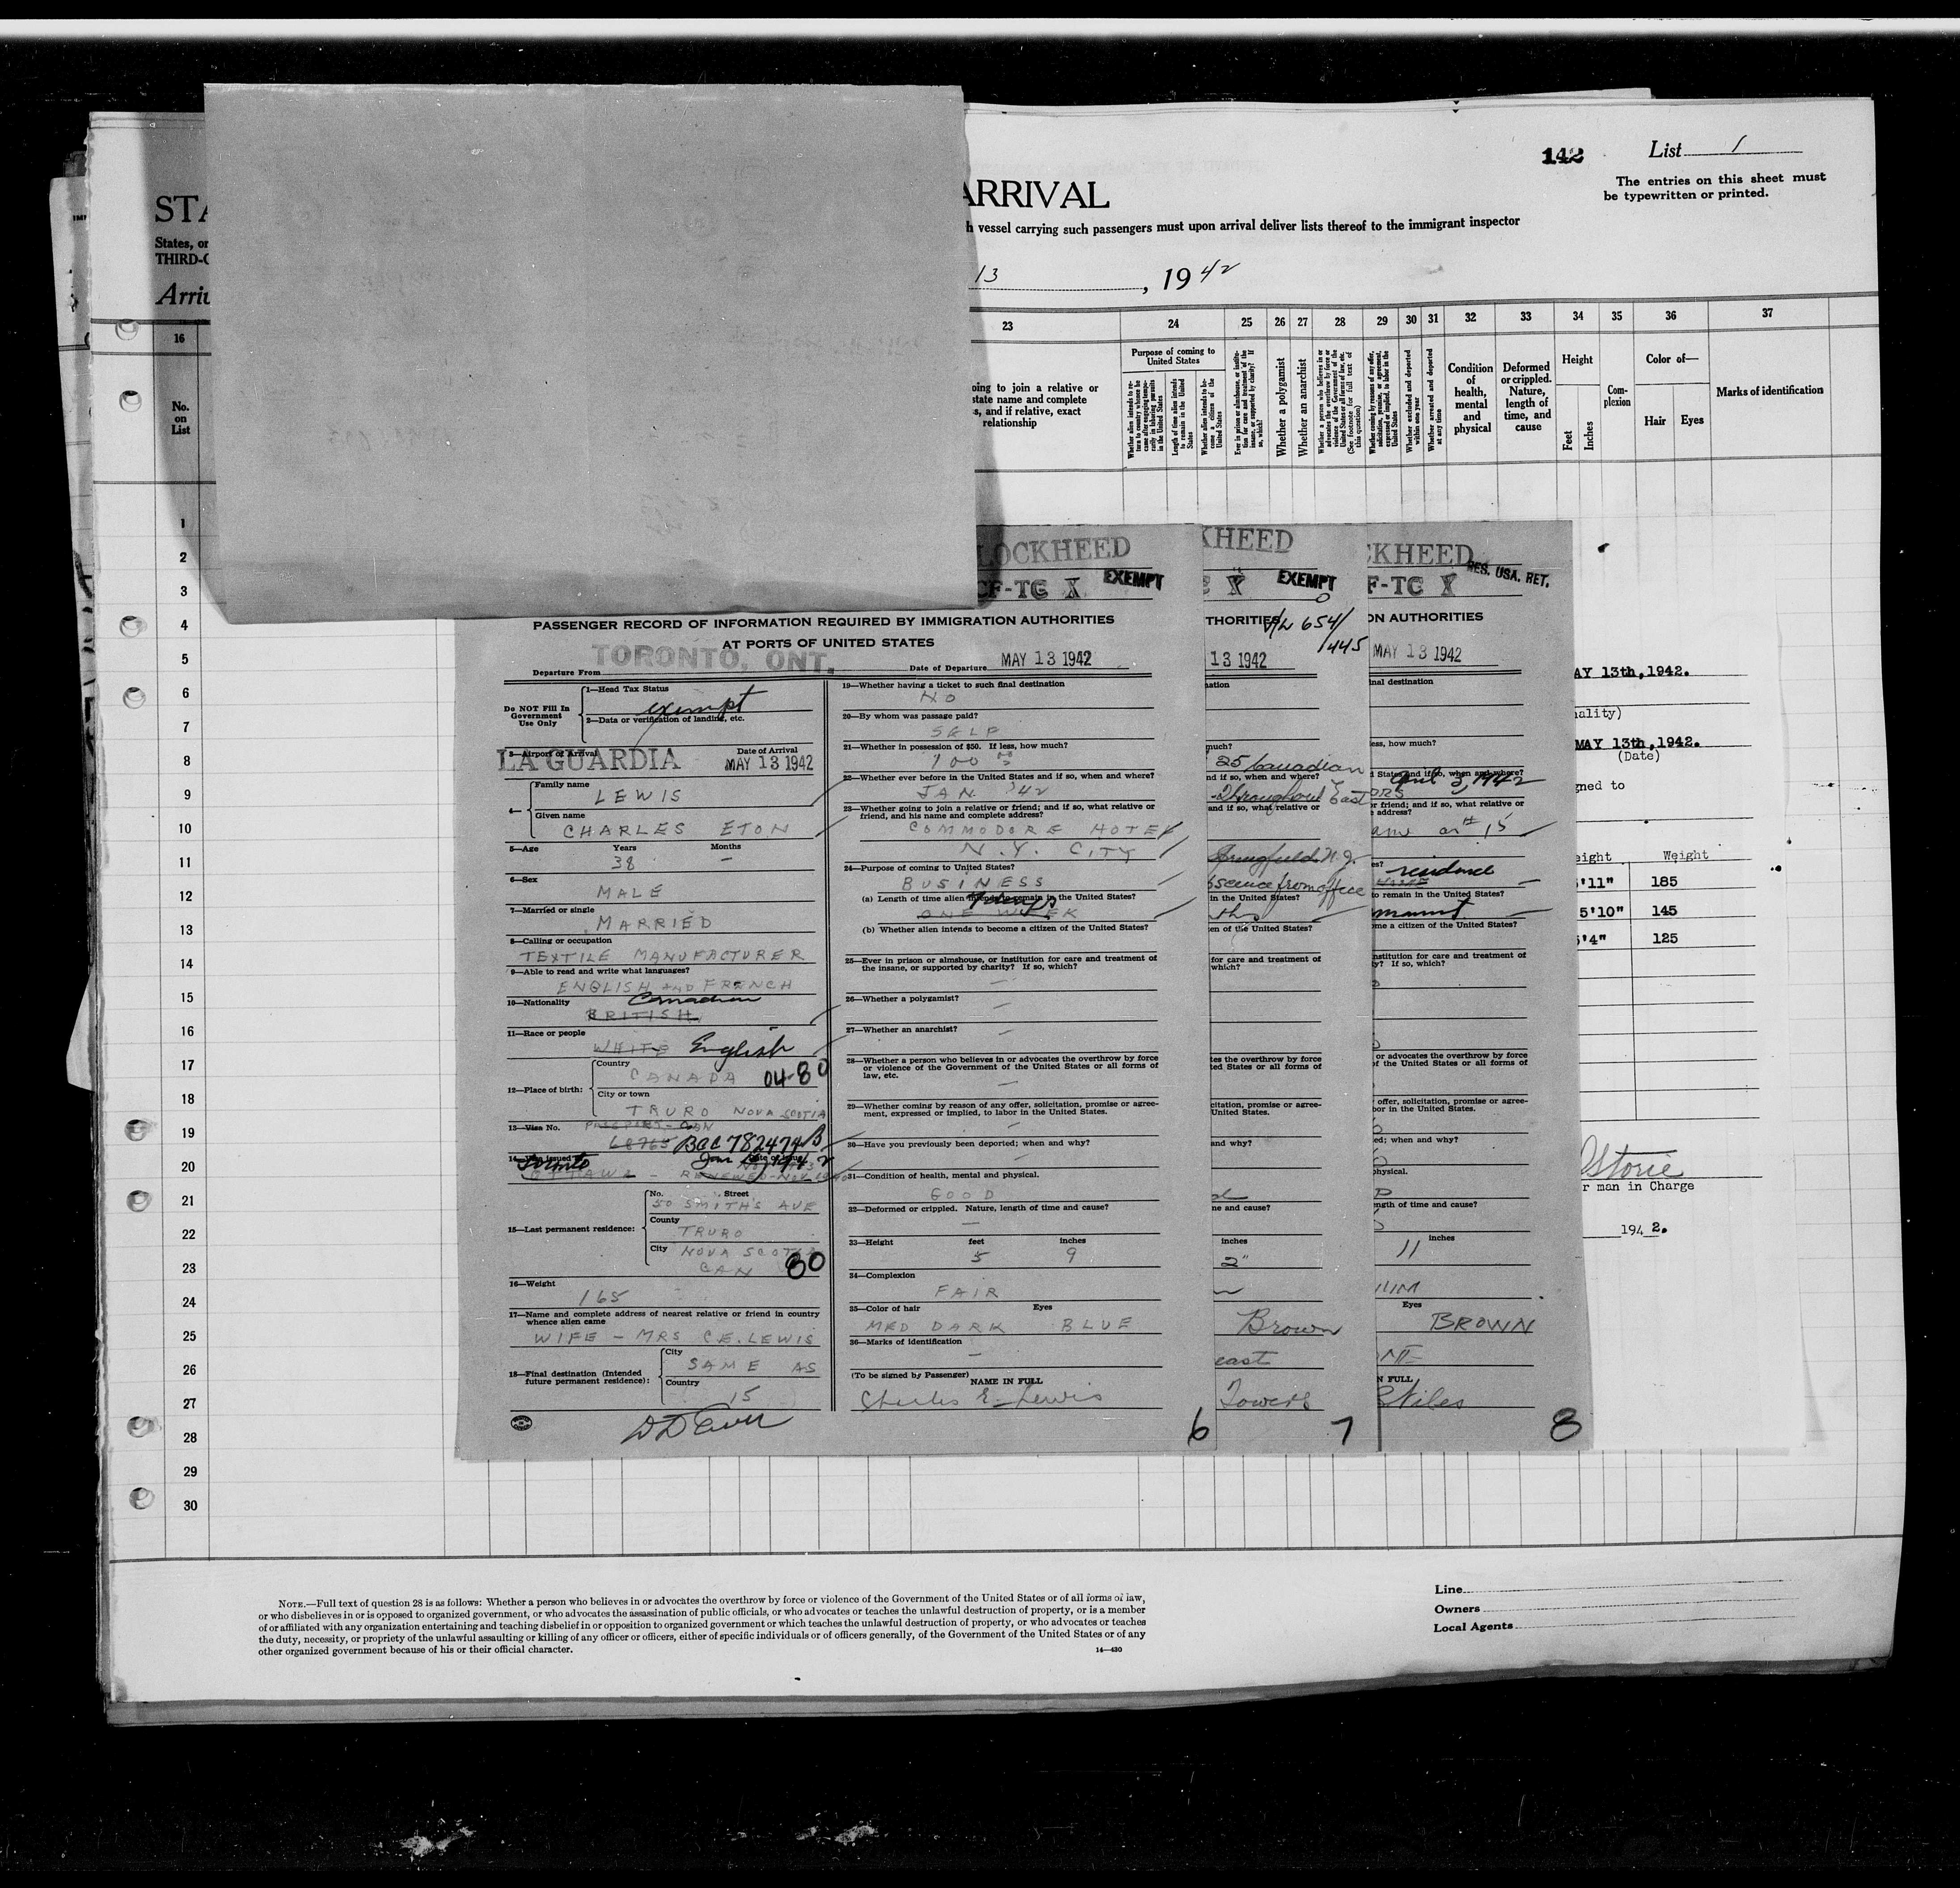 142
List 1
The entries on this sheet must
be typewritten or printed.
STA
ARRIVAL
States, or
THIRD-C
h vessel carrying such passengers must upon arrival deliver lists thereof to the immigrant inspector
Arriv
13, 1942
16
23
24
25
26
27
28
29
30
31
32
33
34
35
36
37
No.
on
List
oing to join a relative or
state name and complete
s, and if relative, exact
relationship
Purpose of coming to
United States
Whether a polygamist
Whether an anarchist
Condition
of
health,
mental
and
physical
Deformed
or crippled.
Nature,
length of
time, and
cause
Height
Feet
Inches
Com-
plexion
Color of—
Hair
Eyes
Marks of identification
1
2
3
4
5
6
7
8
9
10
11
12
13
14
15
16
17
18
19
20
21
22
23
24
25
26
27
28
29
30
LOCKHEED
CF-TC X
EXEMPT
PASSENGER RECORD OF INFORMATION REQUIRED BY IMMIGRATION AUTHORITIES
AT PORTS OF UNITED STATES
Departure From TORONTO, ONT.
Date of Departure MAY 13 1942
Do NOT Fill In
Government
Use Only
1—Head Tax Status
exempt
2—Data or verification of landing, etc.
3—Airport of Arrival
LA GUARDIA
Date of Arrival
MAY 13 1942
4—
Family name
LEWIS
Given name
CHARLES ETON
5—Age Years Months
38 —
6—Sex
MALE
7—Married or single
MARRIED
8—Calling or occupation
TEXTILE MANUFACTURER
9—Able to read and write what languages?
ENGLISH AND FRENCH
10—Nationality
Canadian
BRITISH
11—Race or people
WHITE English
12—Place of birth:
Country
CANADA 04-80
City or town
TRURO NOVA SCOTIA
13—Visa No.
PASSPORT - CAN
68765 BCC 782474 B
14—Visa issued
Toronto
OTTAWA - RENEWED - NOV
15—Last permanent residence:
No. Street
50 SMITH'S AVE
County
TRURO
City
NOVA SCOTIA
CAN 80
16—Weight
165
17—Name and complete address of nearest relative or friend in country
whence alien came
WIFE - MRS C.E. LEWIS
18—Final destination (Intended
future permanent residence):
City
SAME AS
Country
15
19—Whether having a ticket to such final destination
NO
20—By whom was passage paid?
SELF
21—Whether in possession of $50. If less, how much?
100
22—Whether ever before in the United States and if so, when and where?
JAN '42
23—Whether going to join a relative or friend; and if so, what relative or
friend, and his name and complete address?
COMMODORE HOTEL
N.Y. CITY
24—Purpose of coming to United States?
BUSINESS
(a) Length of time alien intends to remain in the United States?
ONE WEEK
(b) Whether alien intends to become a citizen of the United States?
25—Ever in prison or almshouse, or institution for care and treatment of
the insane, or supported by charity? If so, which?
—
26—Whether a polygamist?
—
27—Whether an anarchist?
—
28—Whether a person who believes in or advocates the overthrow by force
or violence of the Government of the United States or all forms of
law, etc.
—
29—Whether coming by reason of any offer, solicitation, promise or agree-
ment, expressed or implied, to labor in the United States.
—
30—Have you previously been deported; when and why?
—
31—Condition of health, mental and physical.
GOOD
32—Deformed or crippled. Nature, length of time and cause?
—
33—Height feet inches
5 9
34—Complexion
FAIR
35—Color of hair Eyes
MED DARK BLUE
36—Marks of identification
—
(To be signed by Passenger)
NAME IN FULL
Charles E. Lewis
6
KHEED
C X
EXEMPT
THORITIES
V/L 654/
1445
13 1942
nation
much?
25 Canadian
nd if so, when and where?
-Throughout East
and if so, what relative or
Springfield N.J.
bsence from office
in the United States?
ths
en of the United States?
for care and treatment of
which?
tes the overthrow by force
ted States or all forms of
citation, promise or agree-
United States.
and why?
d
ne and cause?
inches
2"
Brown
east
Towers
7
CKHEED
F-TC X
RES. USA. RET.
ON AUTHORITIES
MAY 13 1942
inal destination
ess, how much?
d States and if so, when and where?
April 3, 1942
ORS
or friend; and if so, what relative or
address?
ame as #15
es?
residence
to remain in the United States?
me a citizen of the United States?
nstitution for care and treatment of
y? If so, which?
or advocates the overthrow by force
of the United States or all forms of
offer, solicitation, promise or agree-
bor in the United States.
ed; when and why?
physical.
D
ength of time and cause?
inches
11
IUM
Eyes
BROWN
NE
N FULL
Stiles
8
AY 13th, 1942.
nality)
MAY 13th, 1942.
(Date)
gned to
eight Weight
5'11" 185
5'10" 145
5'4" 125
Storie
r man in Charge
1942.
NOTE.—Full text of question 28 is as follows: Whether a person who believes in or advocates the overthrow by force or violence of the Government of the United States or of all forms of law,
or who disbelieves in or is opposed to organized government, or who advocates the assassination of public officials, or who advocates or teaches the unlawful destruction of property, or is a member
of or affiliated with any organization entertaining and teaching disbelief in or opposition to organized government or which teaches the unlawful destruction of property, or who advocates or teaches
the duty, necessity, or propriety of the unlawful assaulting or killing of any officer or officers, either of specific individuals or of officers generally, of the Government of the United States or of any
other organized government because of his or their official character.
14—430
Line
Owners
Local Agents